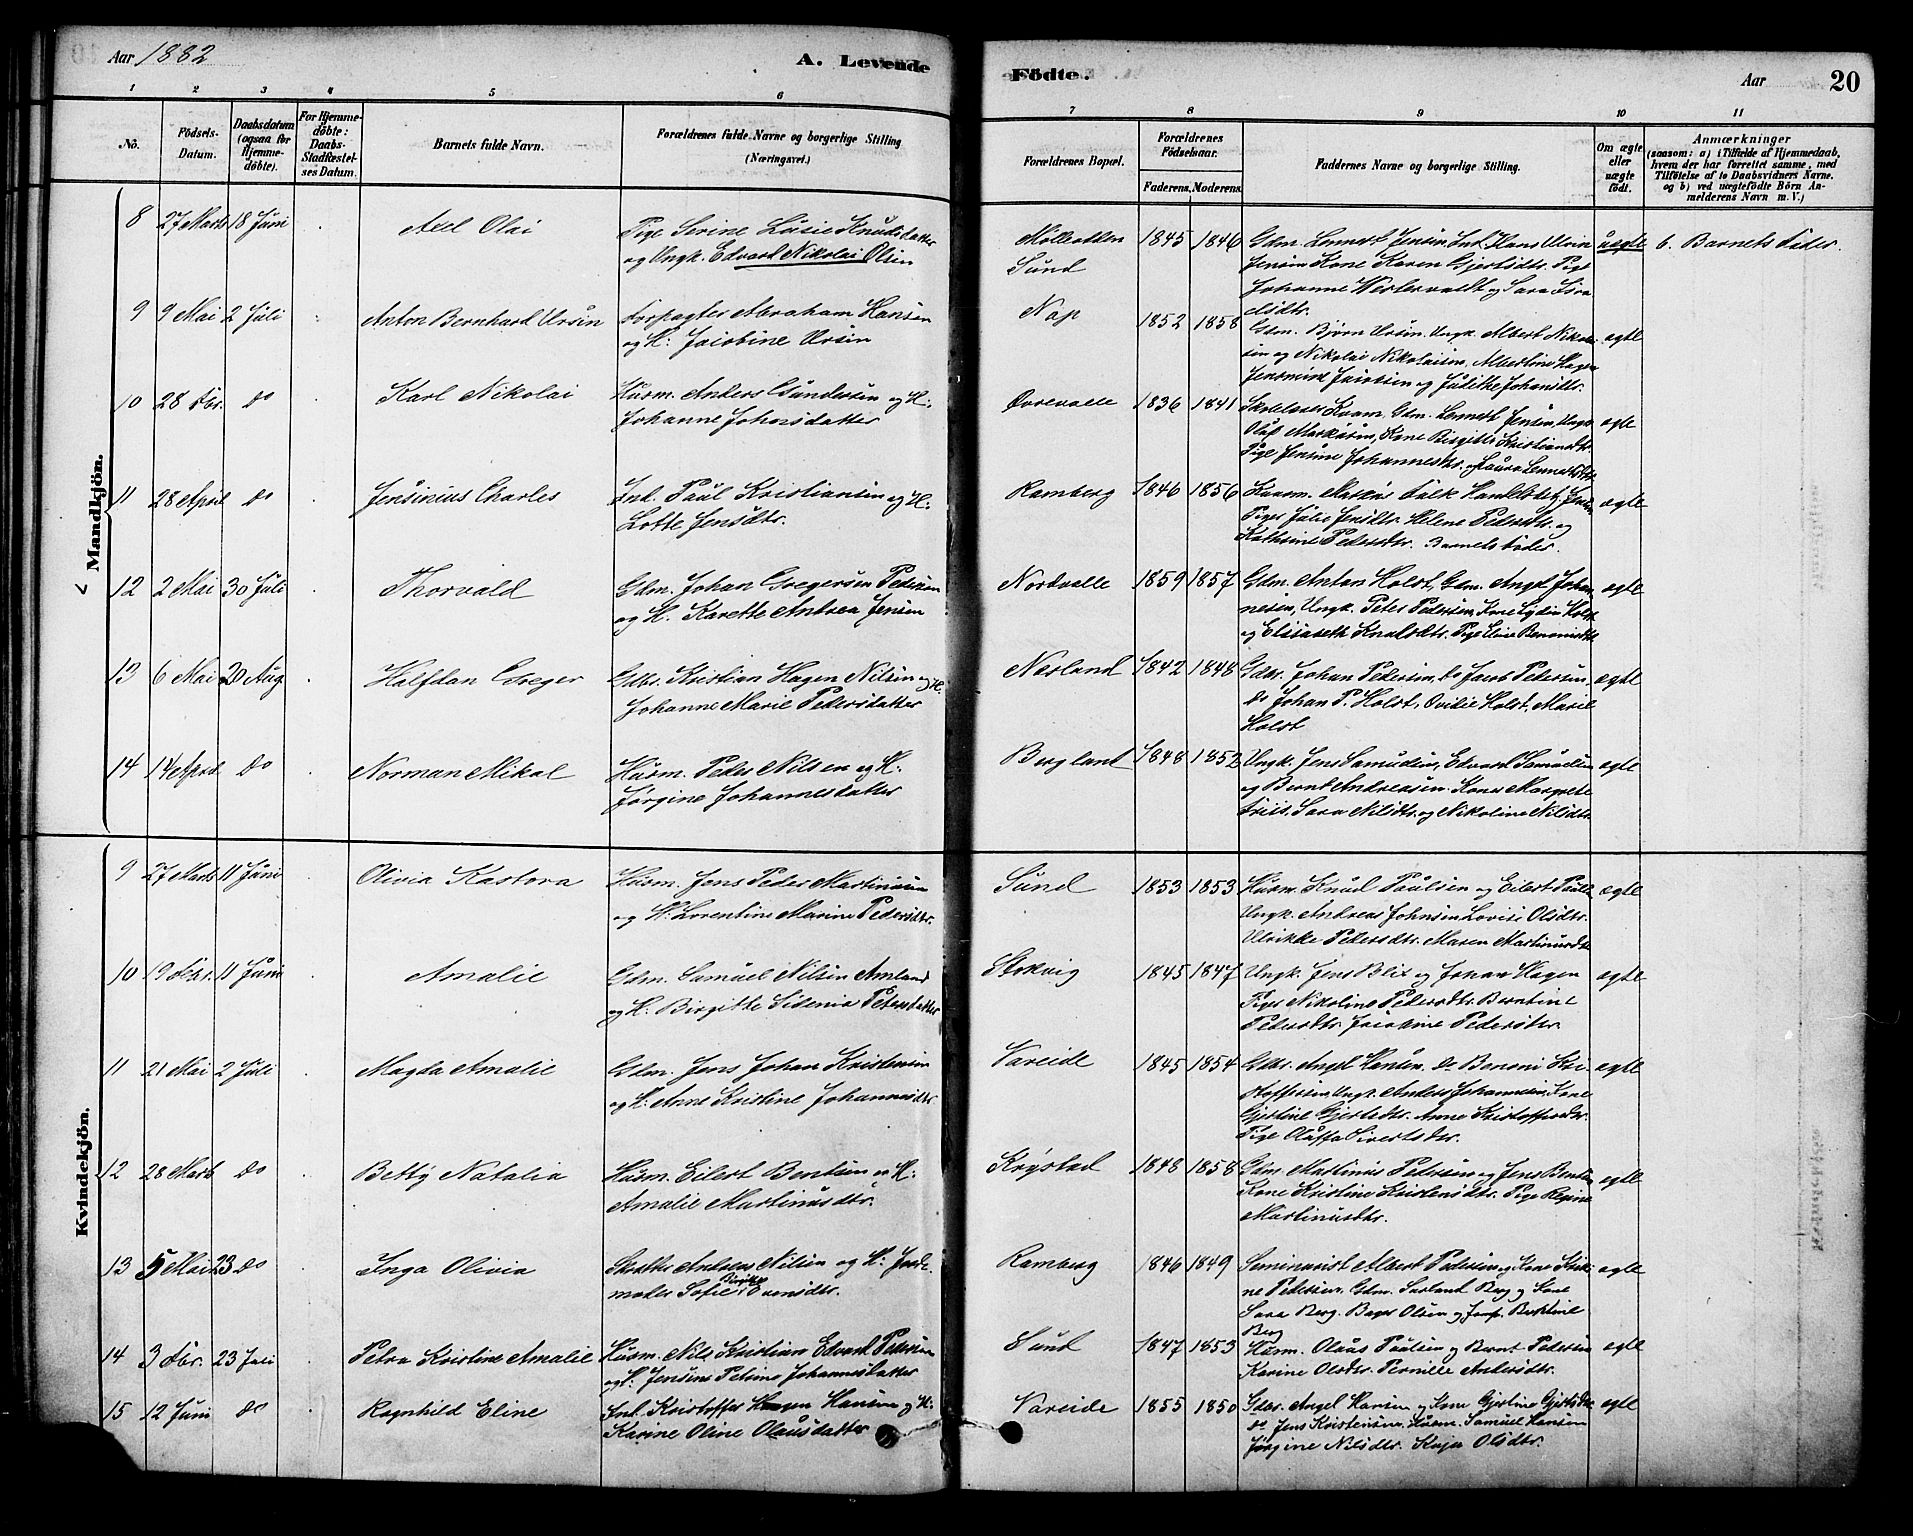 Aar 1882
A. Levende
Födte.
Aar
20
1 2 3 4 5 6 7 8 9 10 11
No.
Födsels-Datum.
Daabsdatum (ogsaa for Hjemmedöbte).
For Hjemmedöbte: Daabs-Stadfæstelses Datum.
Barnets fulde Navn.
Forældrenes fulde Navne og borgerlige Stilling (Næringsvei).
Forældrenes Bopæl.
Forældrenes Födselsaar.
Faderens. Moderens.
Faddernes Navne og borgerlige Stilling.
Om ægte eller uægte födt.
Anmærkninger
(saasom: a) i Tilfælde af Hjemmedaab, hvem der har forrettet samme, med Tilföielse af to Daabsvidners Navne. og b) ved uægtefödte Börn Anmelderens Navn m. V.)
Mandkjön.
8 27 Marts 18 Juni Axel Olai Pige Serine Lusie Knudsdatter 1845 1846 Gdm. Lennert Jensen Ind. Hans uægte b. Barnets Fader
og Ungk. Edvard Nikolai Olsen Sund Jensen Kone Karen Gjertsdtr. Pige
Johanne og Sara
9 9 Mai 2 Juli Anton Bernhard Ursin Forpagter Abraham Hansen Nap 1852 1858 Gdm. Bjørn Ursin Ungk. Albert ægte
og H: Jacobine Ursin og Nikolai Nikolaisen, Albertine Hagen
Jensmine og Judithe Johansdtr.
10 28 Fbr. Do Karl Nikolai Husm. Anders Gundersen og H: 1836 1841 Gdm. Lennert Jensen, Ungk. ægte
Johanne Johnsdatter Oluf Markusen, Kone Birgitte Kristiansdtr.
Pige Jensine Johannesdtr. og Laura
11 28 April Do Jensinius Charles Ind. Paul Kristiansen og H: Ramberg 1846 1856 Falk ægte
Lotte Jensdtr. Piger Julie Jensdtr. Helene Pedersdtr. og
Kathrine Pedersdtr. Barnets Fader.
12 2 Mai 30 Juli Thorvald Gdm. Johan Gregersen Pedersen Nordvalle 1859 1857 Gdm. Antan Holst, Gdm. Angel Johan- ægte
og H. Karette Andrea Jensen nesen, Ungk. Peter Pedersen, Kone Lydia Holst
og Elisabeth Pige Eline
13 6 Mai 20 Aug. Halfdan Greger Gdbr. Kristian Hagen Nilsen og H. Nesland 1842 1848 Gdbr. Johan Pedersen, do Jacob Pedersen, ægte
Johanne Marie Pedersdatter do Johan P. Holst, Ovidie Holst, Marie
Holst
14 14 April Do Norman Mikal Husm. Peder Nilsen og H: Bergland 1848 1852 Ungk. Jens Edvard Samuelsen ægte
Jørgine Johannesdatter og Bernt Andreasen. Kone Margrete
Friis, Sara Nilsdtr. og Nikoline Nilsdtr.
Kvindekjön.
9 27 Marts 11 Juni Olivia Kastora Husm. Jens Peder Martinsen Sund 1853 1853 Husm. Knud Paulsen og Eilert ægte
og H: Lorentine Marine Pedersdtr. Ungk. Andreas Johnsen Lovise Olsdtr.
Ulrikke Pedersdtr. Maren
10 19 Febr. 11 Juni Amalie Gdm. Samuel Nilsen Amland Storvig 1845 1847 Ungk. Jens Blix og Johan Hagen ægte
og H: Birgitte Sidenia Petersdatter Piger Nikoline Pedersdtr. Berntine
Pedersdtr. Jacobine Pedersdtr.
11 21 Mai 2 Juli Magda Amalie Gdm. Jens Johan Kristensen Vareide 1845 1854 Gdbr. Angel Hansen. do Benoni Kri- ægte
og H: Anne Kristine Johannesdtr. stoffersen Ungk. Anders Johannesen, Kone
Gjertine Gjertsdtr. Anne Kristoffersdtr.
Pige Oluffa Sivertsdtr.
12 28 Marts Do Betty Natalia Husm. Eilert Bentsen og H: Krystad 1848 1858 Gdm. Martinus Pedersen og Jens Bentsen ægte
Amalie Martinusdtr. Kone Kristine Kristensdtr. Pige Regine
Martinusdtr.
13 5 Mai 23 Do Inga Olivia Andreas Nilsen og H: Jorde- Ramberg 1846 1849 Seminarist Albert Pedersen og Kone Kristi- ægte
moder Sofie Evensdtr. ne Pedersen. Gdm. Berg og Kone
Sara Berg. Bager Olsen og Berntine
Berg
14 3 Fbr. 23 Juli Petra Kristine Amalie Husm. Nils Kristian Edvard Petersen Sund 1847 1853 Husm. Olaus Paulsen og Bernt Pedersen ægte
og H. Jensine Petrine Johannesdatter Karine Olsdtr. Pernille Andersdtr.
15 12 Juni Do Ragnhild Eline Ind. Kristoffer Hagen Hansen og H: Vareide 1855 1850 Gdbr. Angel Hansen og Kone Gjertine Gjertsdtr. ægte
Karine Oline Olausdatter do Jens Kristensen. Husm. Samuel Hansen
Jørgine Nilsdtr. Kaja Olsdtr.